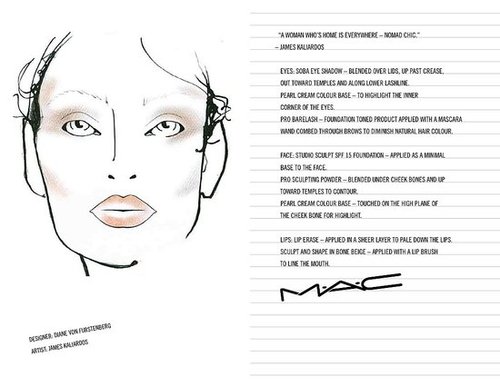 "A WOMAN WHO'S HOME IS EVERYWHERE – NOMAD CHIC."
– JAMES KALIARDOS
EYES: SOBA EYE SHADOW – BLENDED OVER LIDS, UP PAST CREASE,
OUT TOWARD TEMPLES AND ALONG LOWER LASHLINE.
PEARL CREAM COLOUR BASE – TO HIGHLIGHT THE INNER
CORNER OF THE EYES.
PRO BARELASH – FOUNDATION TONED PRODUCT APPLIED WITH A MASCARA
WAND COMBED THROUGH BROWS TO DIMINISH NATURAL HAIR COLOUR.
FACE: STUDIO SCULPT SPF 15 FOUNDATION – APPLIED AS A MINIMAL
BASE TO THE FACE.
PRO SCULPTING POWDER – BLENDED UNDER CHEEK BONES AND UP
TOWARD TEMPLES TO CONTOUR.
PEARL CREAM COLOUR BASE – TOUCHED ON THE HIGH PLANE OF
THE CHEEK BONE FOR HIGHLIGHT.
LIPS: LIP ERASE – APPLIED IN A SHEER LAYER TO PALE DOWN THE LIPS.
SCULPT AND SHAPE IN BONE BEIGE – APPLIED WITH A LIP BRUSH
TO LINE THE MOUTH.
M·A·C
DESIGNER: DIANE VON FURSTENBERG
ARTIST: JAMES KALIARDOS